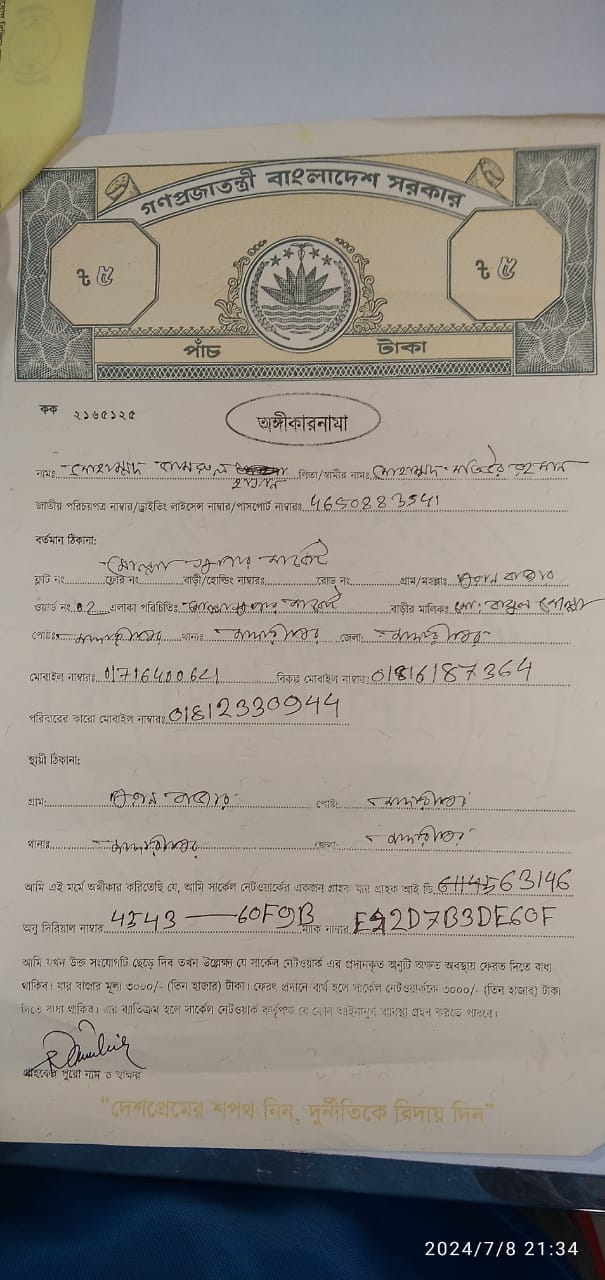 গণপ্রজাতন্ত্রী বাংলাদেশ সরকার
৳ ৫ ৳ ৫
পাঁচ টাকা
কক ২১৬৫১২৫
অঙ্গীকারনামা
নামঃ মোহাম্মদ কামরুল হাসান পিতা/স্বামীর নামঃ মোহাম্মদ মতিউর রহমান
জাতীয় পরিচয়পত্র নাম্বার/ড্রাইভিং লাইসেন্স নাম্বার/পাসপোর্ট নাম্বারঃ 4650883541
বর্তমান ঠিকানা:
মোল্লা সুপার মার্কেট
ফ্লাট নং ফ্লোর নং বাড়ী/হোল্ডিং নাম্বারঃ রোড নং গ্রাম/মহল্লাঃ পুরান বাজার
ওয়ার্ড নং 02 এলাকা পরিচিতিঃ মোল্লা সুপার মার্কেট বাড়ীর মালিকঃ মো: বাবুল মোল্লা
পোষ্টঃ মাদারীপুর থানাঃ মাদারীপুর জেলা: মাদারীপুর
মোবাইল নাম্বারঃ 01716400621 বিকল্প মোবাইল নাম্বার: 01816187364
পরিবারের কারো মোবাইল নাম্বারঃ 01812330944
স্থায়ী ঠিকানা:
গ্রাম: পুরান বাজার পোষ্ট: মাদারীপুর
থানাঃ মাদারীপুর জেলা: মাদারীপুর
আমি এই মর্মে অঙ্গীকার করিতেছি যে, আমি সার্কেল নেটওয়ার্কের একজন গ্রাহক যার গ্রাহক আই ডি
অনু সিরিয়াল নাম্বার 4543 — 60F9B ম্যাক নাম্বার 2D7B3DE60F
আমি যখন উক্ত সংযোগটি ছেড়ে দিব তখন উল্লেক্ষ যে সার্কেল নেটওয়ার্ক এর প্রদানকৃত অনুটি অক্ষত অবস্থায় ফেরত দিতে বাধ্য
থাকিব। যার বাজার মূল্য ৩০০০/- (তিন হাজার) টাকা। ফেরৎ প্রদানে ব্যর্থ হলে সার্কেল নেটওয়ার্ককে ৩০০০/- (তিন হাজার) টাকা
দিতে বাধ্য থাকিব। এর ব্যতিক্রম হলে সার্কেল নেটওয়ার্ক কর্তৃপক্ষ যে কোন আইনানুগ ব্যবস্থা গ্রহণ করতে পারবে।
গ্রাহকের পুরো নাম ও স্বাক্ষর
“দেশপ্রেমের শপথ নিন, দুর্নীতিকে বিদায় দিন”
2024/7/8 21:34